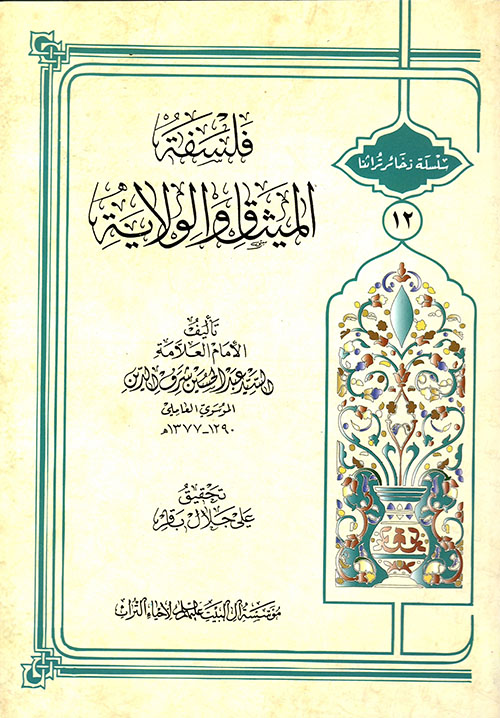 سلسلة ذخائر تراثنا
١٢
فلسفة
الميثاق والولاية
تأليف
الإمام العلامة
السيد عبد الحسين شرف الدين
الموسوي العاملي
١٢٩٠ـ١٣٧٧هـ
تحقيق
علي جلال باقر
مؤسسة آل البيت عليهم السلام لإحياء التراث